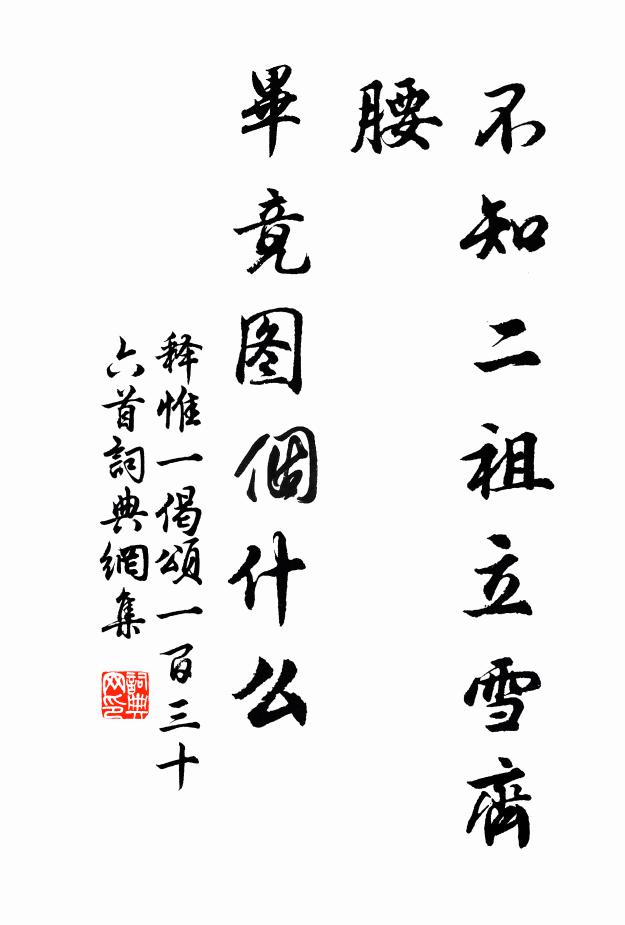 不知二祖立雪齊
腰
畢竟图個什么
释惟一偈頌一百三十
六首詞典網集
詞典
网印